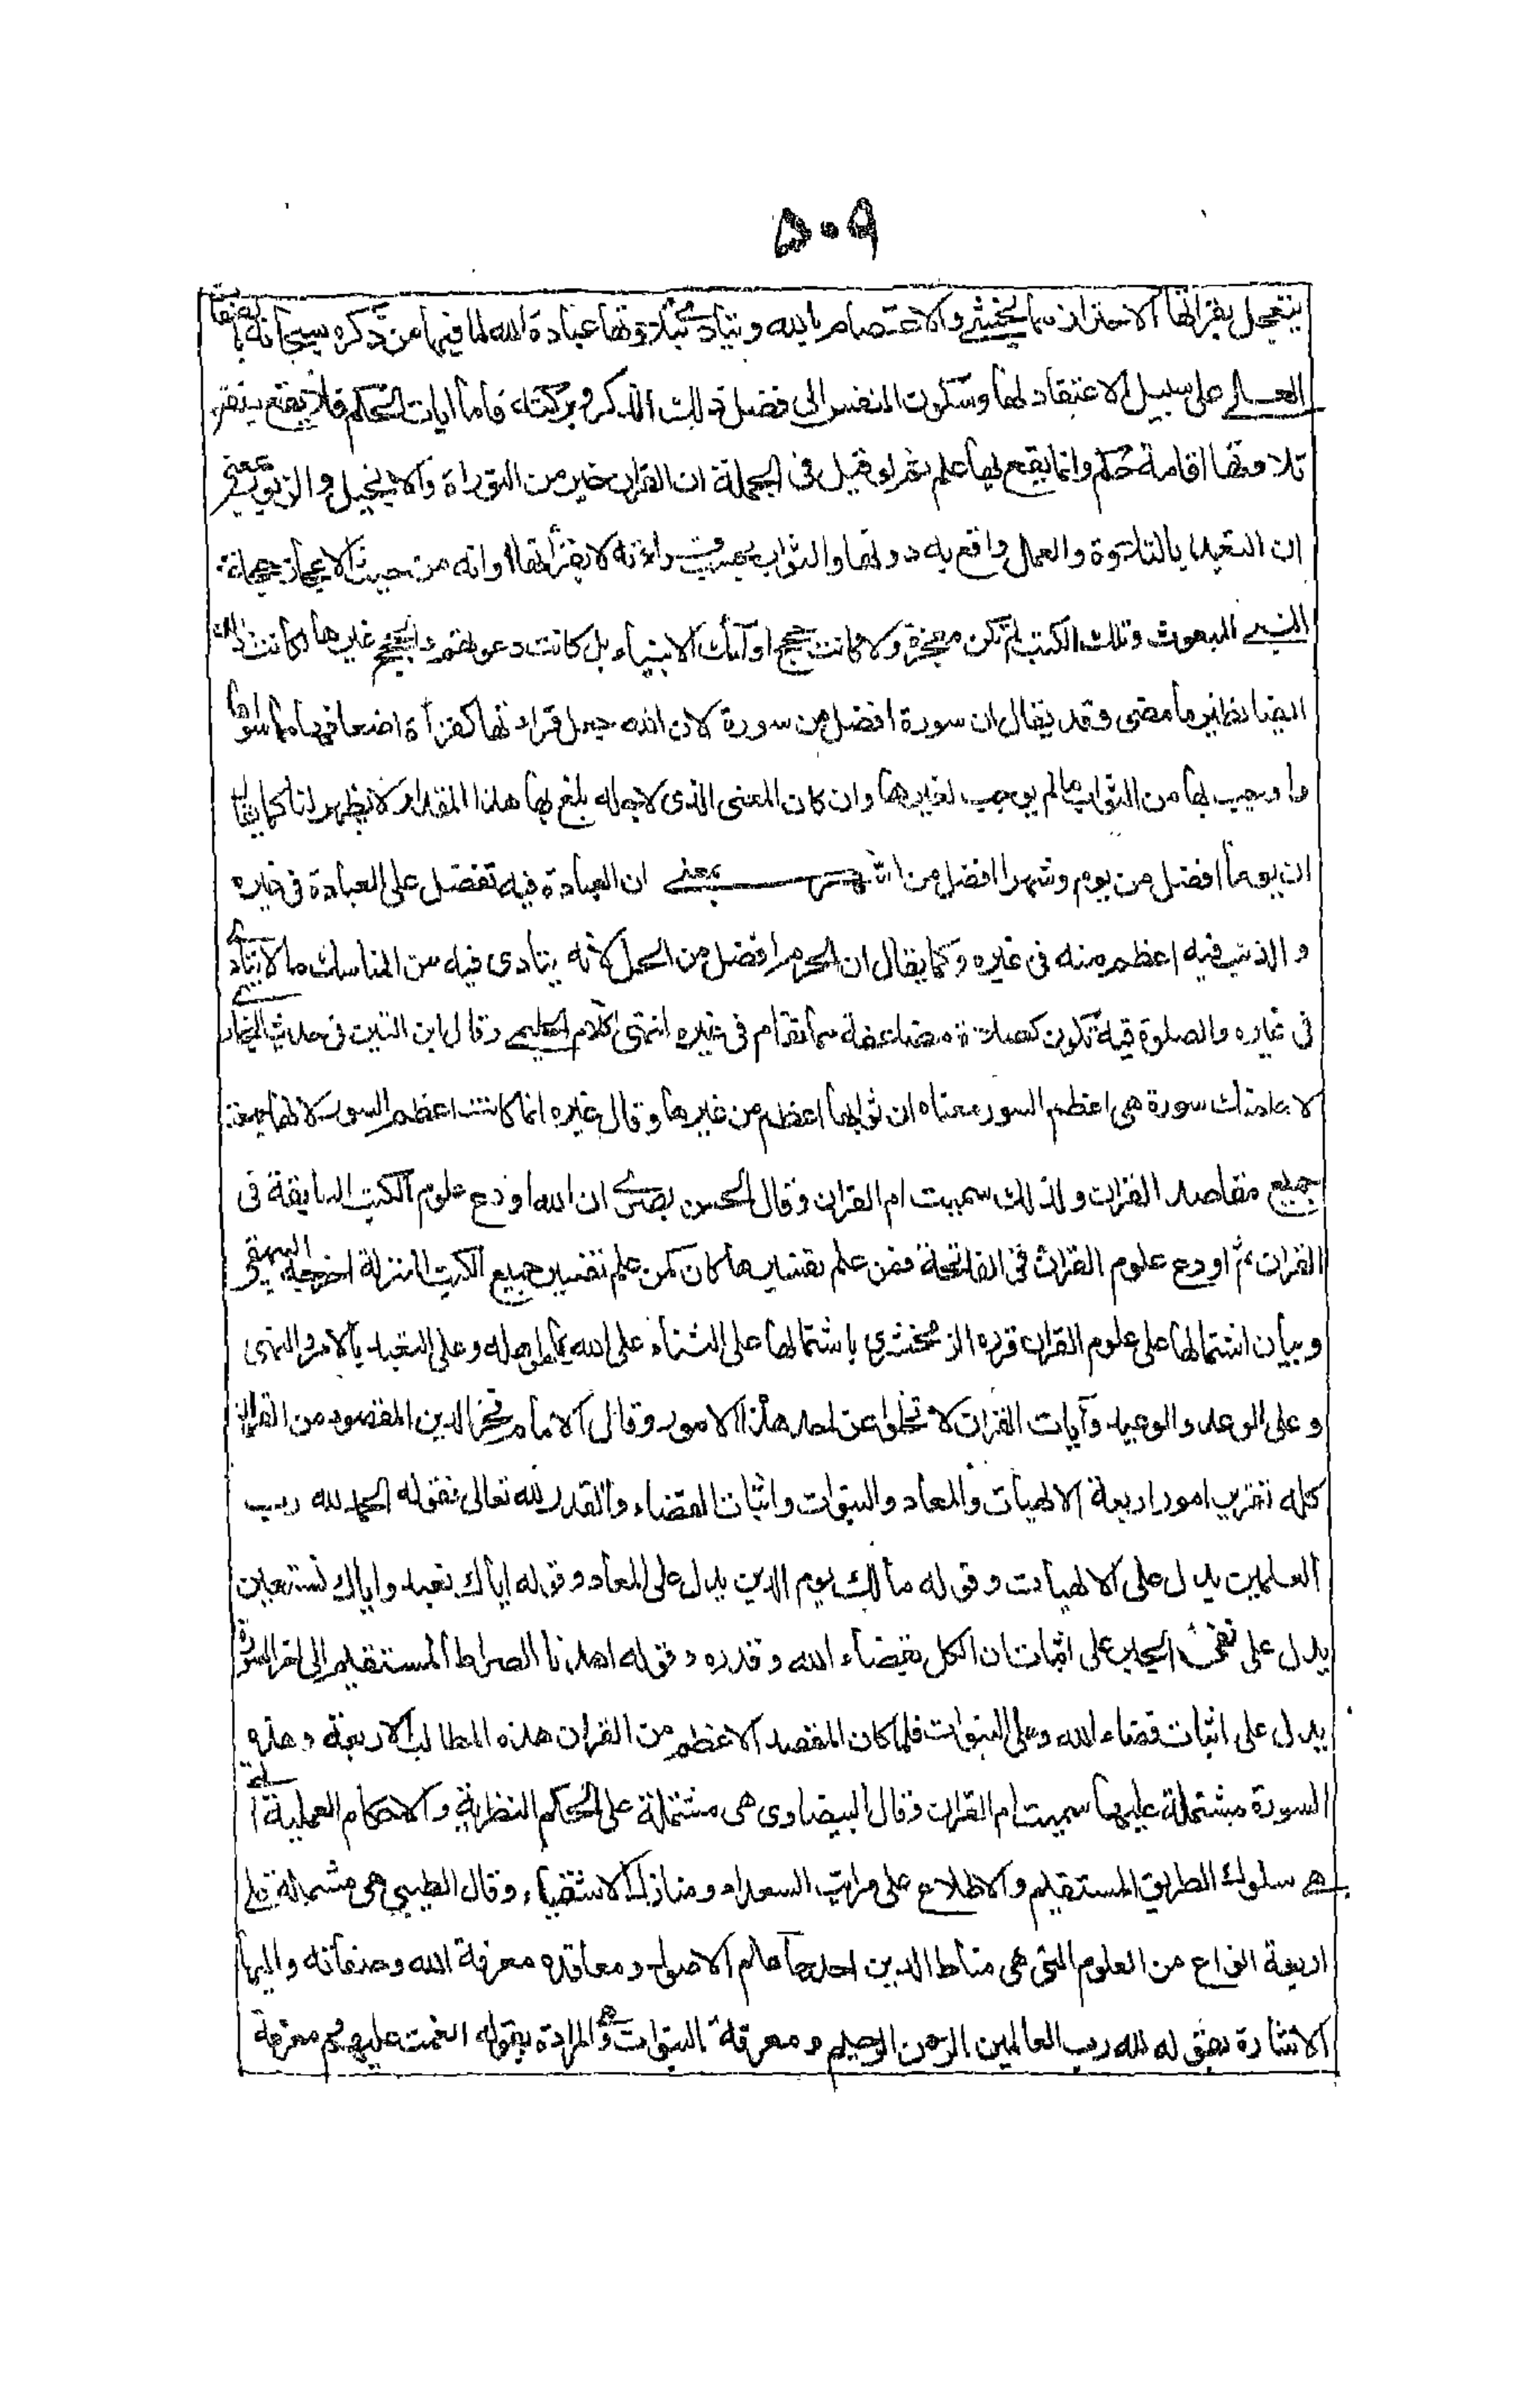 ٥٠٩
يتعجل بقرائتها الاحتراز مما يخشى والاعتصام بالله ويتأدى بتلاوتها عبادة الله لما فيها من ذكره سبحانه بالصفا
العلى على سبيل الاعتقاد لها وسكون النفس الى فضل ذلك الذكر وبركته فاما ايات الحكم فلا يقع بنفس
تلاوتها اقامة حكم وانما يقع بها علم ثم لو قيل فى الجملة ان القران خير من التوراة والانجيل والزبور بمعنى
ان التعبد بالتلاوة والعمل واقع به دونها والثواب بحسب قراءته لا بقرأتها او انه من حيث الاعجاز حجة
النبي المبعوث وتلك الكتب لم تكن معجزة ولا كانت حجج اولئك الانبياء بل كانت دعوتهم والحجج غيرها وكانت ذلك
ايضا نظير ما مضى وقد يقال ان سورة افضل من سورة لان الله جعل قراءتها كقرأة اضعافها مما سواها
واوجب بها من الثواب ما لم يوجب لغيرها وان كان المعنى الذى لاجله بلغ بها هذا المقدار لا يظهر لنا كما يقال
ان يوما افضل من يوم وشهرا افضل من شهر بمعنى ان العبادة فيه تفضل على العبادة فى غيره
و الذنب فيه اعظم منه فى غيره وكما يقال ان الحرم افضل من الحل لأنه يتأدى فيه من المناسك ما لا يتأدى
فى غيره والصلوة فيه تكون كصلاة مضاعفة مما تقام فى غيره انتهى كلام الحليمى وقال ابن التين فى حديث البخارى
لاعلمنك سورة هى اعظم السور معناه ان ثوابها اعظم من غيرها وقال غيره انما كانت اعظم السور لانها جمعت
جميع مقاصد القران ولذلك سميت ام القران وقال الحسن بصرى ان الله اودع علوم الكتب السابقة فى
القران ثم اودع علوم القران فى الفاتحة فمن علم تفسيرها كان كمن علم تفسير جميع الكتب المنزلة اخرجه البيهقى
وبيان اشتمالها على علوم القران قرره الزمخشرى باشتمالها على الثناء على الله بما هو اهله وعلى التعبد بالامر والنهى
وعلى الوعد والوعيد وآيات القران لا تخلوا عن احد هذا الامور وقال الامام فخر الدين المقصود من القران
كله تقرير امور اربعة الالهيات والمعاد والنبوات واثبات القضاء والقدر لله تعالى فقوله الحمد لله رب
العلمين يدل على الالهيات وقوله مالك يوم الدين يدل على المعاد وقوله اياك نعبد واياك نستعين
يدل على نفى الجبر على اثبات ان الكل بقضاء الله وقدره وقوله اهدنا الصراط المستقيم الى اخر السورة
يدل على اثبات قضاء الله وعلى النبوات فلما كان المقصد الاعظم من القران هذه المطالب الاربعة وهذه
السورة مشتملة عليها سميت ام القران وقال البيضاوى هى مشتملة على الحكم النظرية والاحكام العملية التى
هى سلوك الطريق المستقيم والاطلاع على مراتب السعداء ومنازل الاشقياء وقال الطيبي هى مشتملة على
اربعة انواع من العلوم التى هى مناط الدين احدها علم الاصول ومعاقده معرفة الله وصفاته واليها
الاشارة بقوله لله رب العالمين الرحمن الرحيم ومعرفة النبوات وهى المرادة بقوله انعمت عليهم ومعرفة